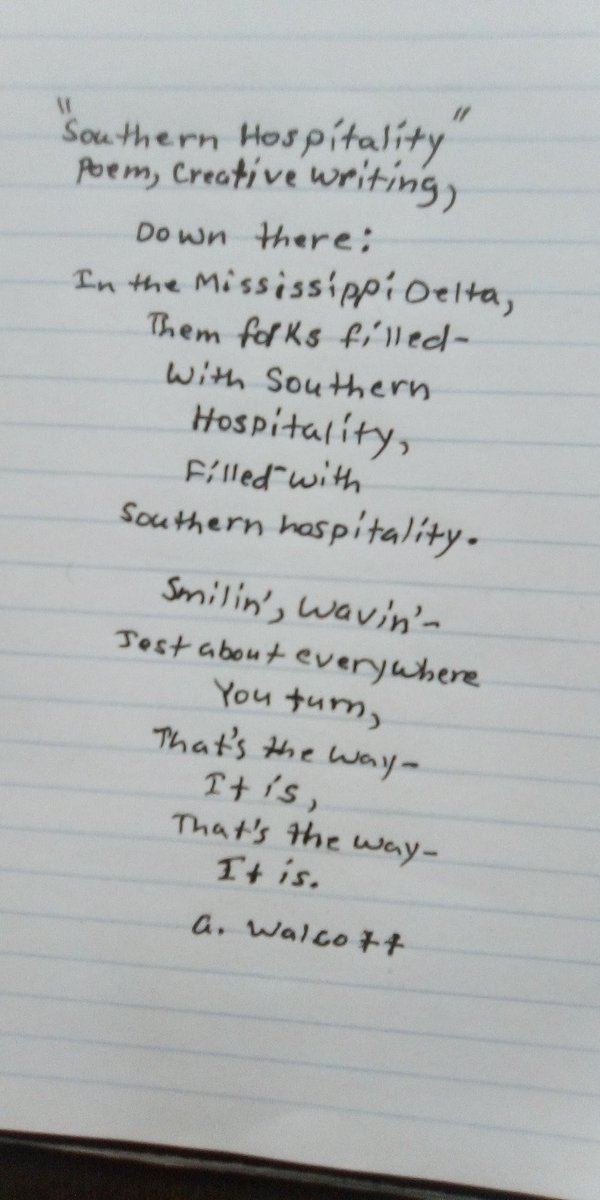 "Southern Hospitality"
Poem, Creative Writing,
Down there:
In the Mississippi Delta,
Them folks filled-
With Southern
Hospitality,
Filled-with
Southern hospitality.
Smilin', Wavin'-
Jest about everywhere
You turn,
That's the way-
It is,
That's the way-
It is.
a. Walcott